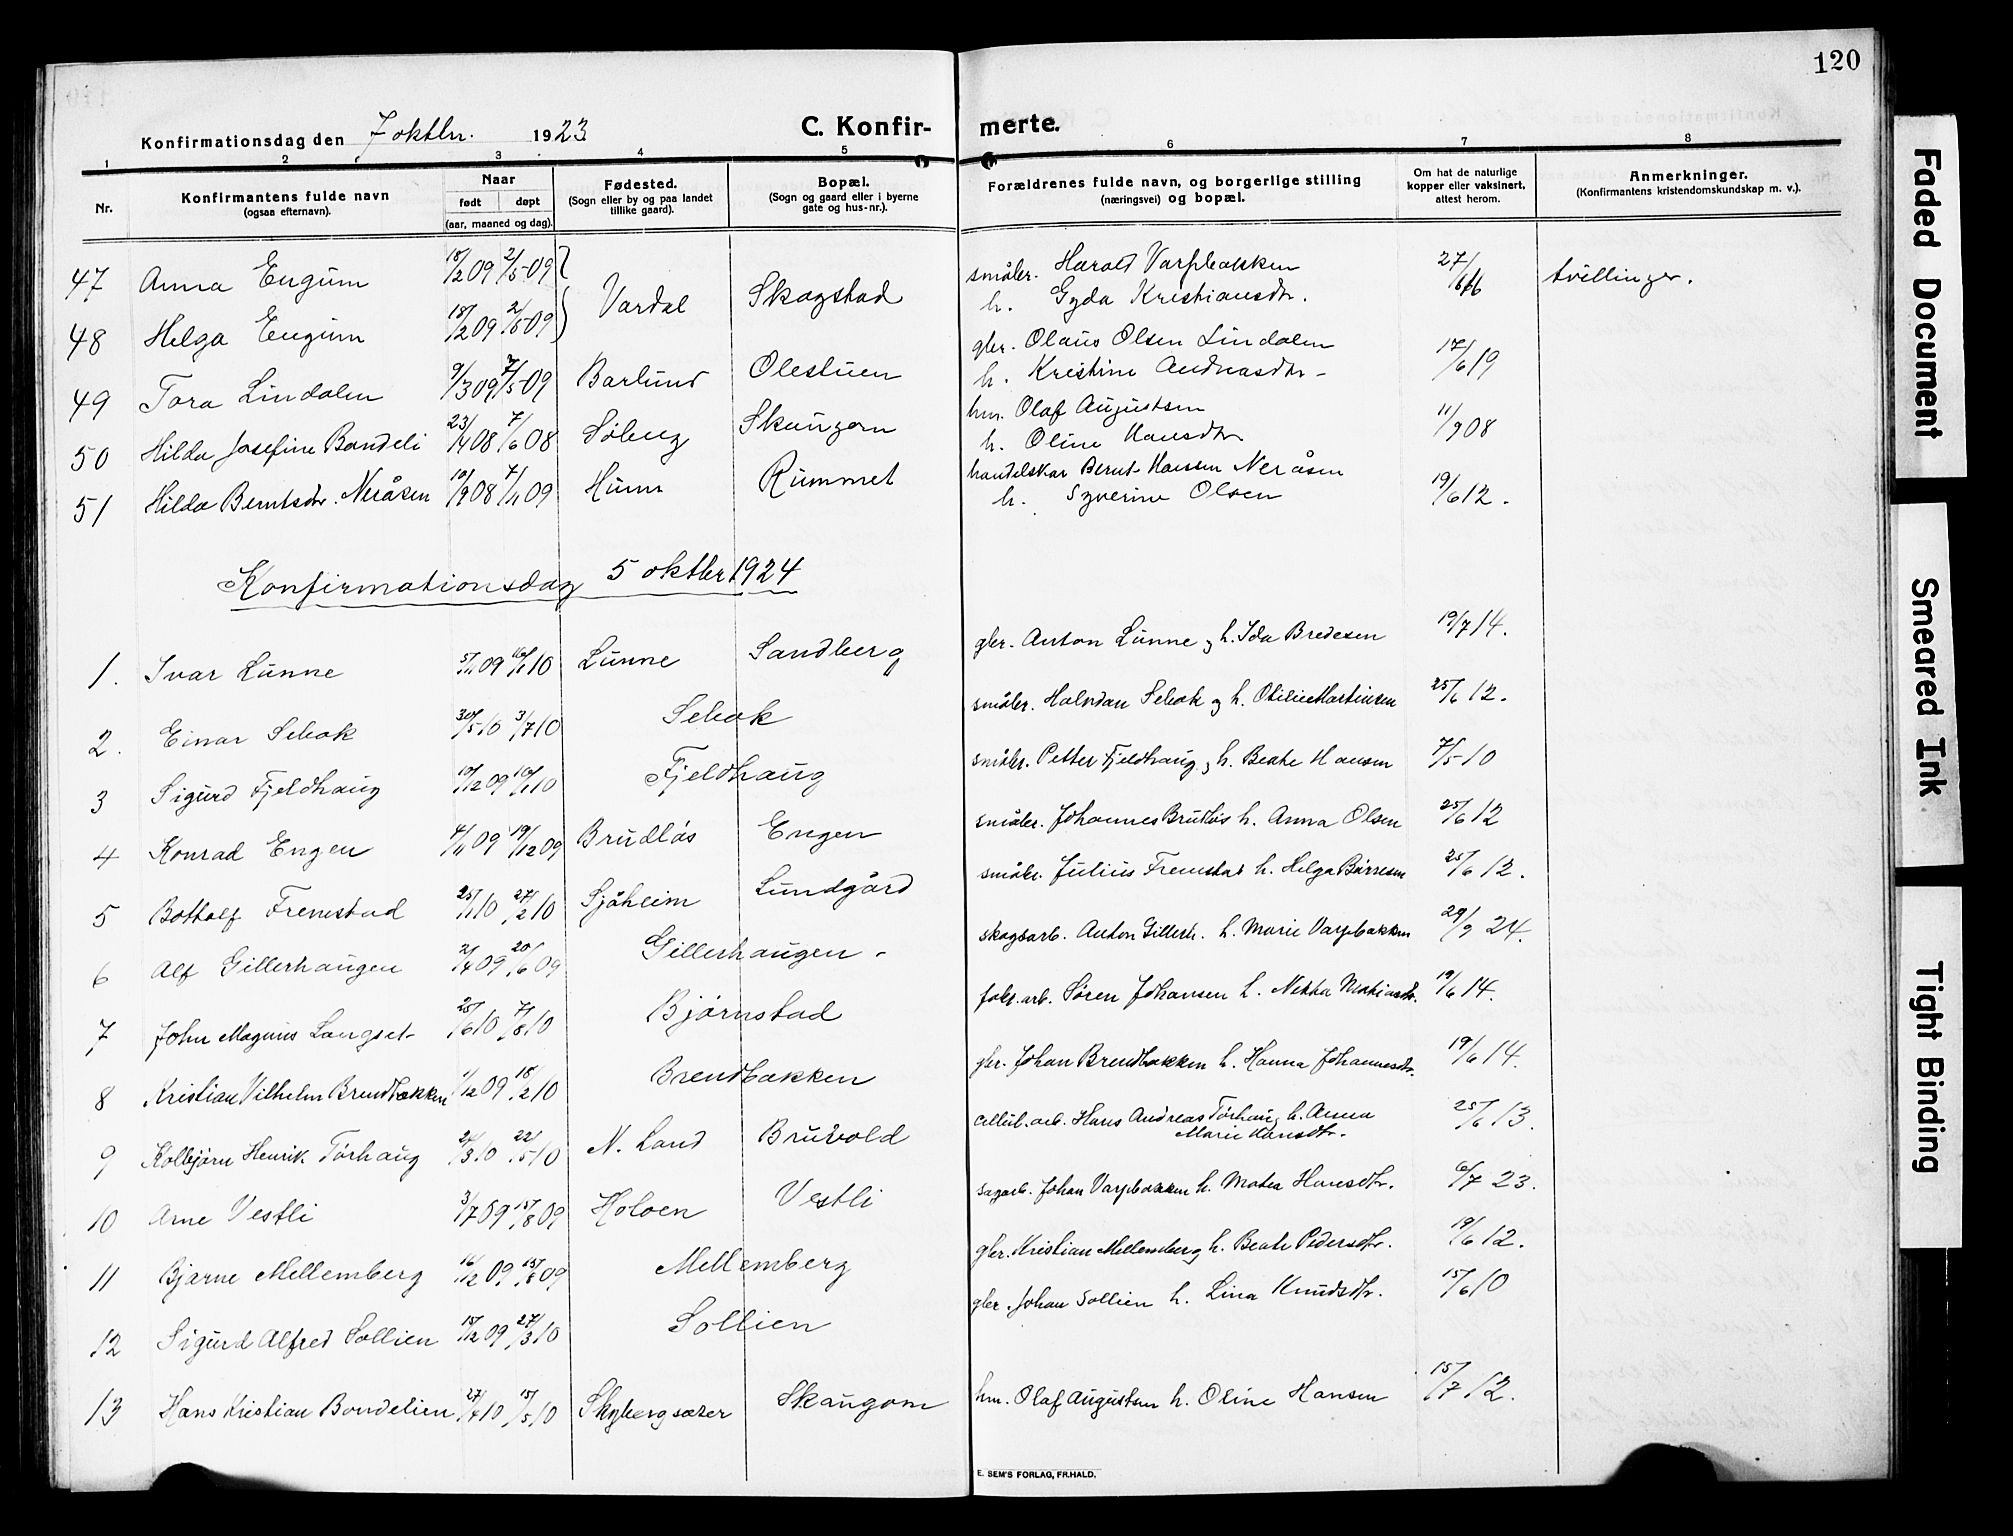 120
Konfirmationsdag den 7 oktbr. 1923
C. Konfir- merte.
1 2 3 4 5 6 7 8
Nr.
Konfirmantens fulde navn
(ogsaa efternavn).
Naar
født døpt
(aar, maaned og dag).
Fødested.
(Sogn eller by og paa landet
tillike gaard).
Bopæl.
(Sogn og gaard eller i byerne
gate og hus-nr.).
Forældrenes fulde navn, og borgerlige stilling
(næringsvei) og bopæl.
Om hat de naturlige
kopper eller vaksinert,
attest herom.
Anmerkninger.
(Konfirmantens kristendomskundskap m. v.).
47 Anna Engum 18/2 09 2/5 09 } Vardal Skogstad småbr. Harald Varpbakken 27/6 16 tvillinger.
h. Gyda Kristiansdtr.
48 Helga Engum 18/2 09 2/5 09
49 Tora Lindalen 9/3 09 7/5 09 Barlund Olestuen gbr. Olaus Olsen Lindalen 17/6 19
h. Kristine Andreasdtr -
50 Hilda Josefine Bondeli 23/4 08 7/6 08 Søberg Skaugom hm. Olaf Augustsen 11/9 08
h. Oline Hansdtr
51 Hilda Berntsdtr. Neråsen 10/9 08 7/11 09 Hunn Rummet handelskar Bernt Hansen Neråsen 19/6 12.
h. Syverine Olsen
Konfirmationsdag 5 oktbr 1924
1. Ivar Lunne 5/11 09 16/1 10 Lunne Sandberg gbr. Anton Lunne og h. Ida Bredesen 19/7 14.
2. Einar Sebok 30/5 10 3/7 10 Sebok småbr. Halvdan Sebok og h. Otilie Martinsen 25/6 12.
3 Sigurd Fjeldhaug 10/12 09 16/1 10 Fjeldhaug småbr. Petter Fjeldhaug og h. Beate Hansen 7/5 10
4 Konrad Engen 4/11 09 19/12 09 Brudløs Engen småbr. Johannes Brudløs h. Anna Olsen 25/6 12
5 Bottolf Fremstad 25/1 10 27/2 10 Sjåheim Lundgård småbr. Julius Fremstad h. Helga Børresen 25/6 12.
6 Alf Gillerhaugen 2/4 09 20/6 09 Gillerhaugen - skogsarb. Anton Gillerh. h. Marie Varpbakken 29/9 24.
7 John Magnus Langset 25/6 10 7/8 10 Bjørnstad fabr.arb. Søren Johansen h. Nekka Mathiasdtr. 19/6 14.
8 Kristian Vilhelm Brendbakken 1/12 09 18/2 10 Brendbakken gbr. Johan Brendbakken h. Hanna Johannesdtr. 19/6 14.
9 Kolbjørn Henrik Tørhaug 24/3 10 22/5 10 N. Land Bruvold cellul.arb. Hans Andreas Tørhaug h. Anna 25/6 13.
Marie Hansdtr.
10 Arne Vestli 3/7 09 15/8 09 Holoen Vestli sagarb. Johan Varpbakken h. Matea Hansdtr. 6/7 23.
11 Bjarne Mellemberg 16/12 09 15/8 09 Mellemberg gbr. Kristian Mellemberg h. Beate Pedersdtr. 19/6 12.
12 Sigurd Alfred Sollien 15/12 09 27/3 10 Sollien gbr. Johan Sollien h. Lina Knudsdtr. 15/6 10
13 Hans Kristian Bondelien 27/4 10 15/5 10 Skybergsæter Skaugom hm. Olaf Augustsen h. Oline Hansen 15/7 12.
E. SEM'S FORLAG, FR.HALD.
Faded Document
Smeared Ink
Tight Binding